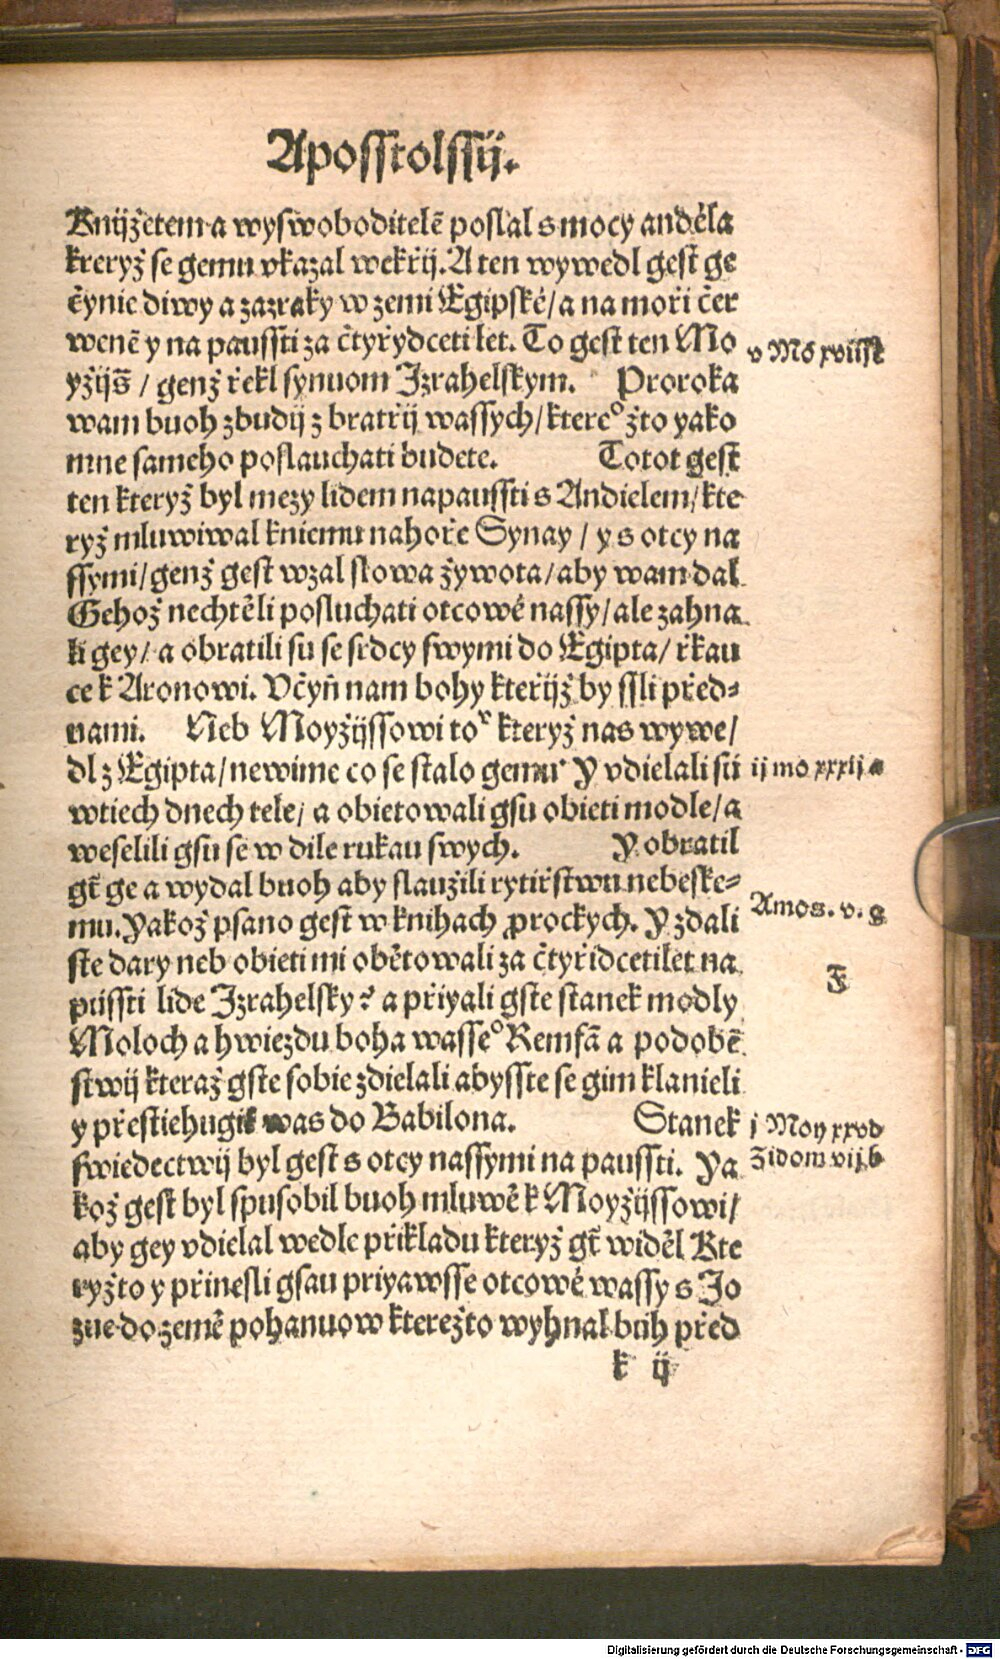 Aposstolssij.
Knijżetem a wyswoboditelē poslal s mocy anděla
kreryż se gemu vkazal wekřij. A ten wywedl gest ge
čynie diwy a zazraky w zemi Egipské/ a na moři čer
wenē y na paussti za čtyřydceti let. To gest ten Mo
v Mo xviij
yżijs̄ / genż řekl synuom Jzrahelskym. Proroka
wam buoh zbudij z bratřij wassych/ ktereº żto yako
mne sameho poslauchati budete. Totot gest
ten kteryż byl mezy lidem napaussti s Andielem/ kte
ryż mluwiwal kniemu nahoře Synay / y s otcy na
ssymi/ genż gest wzal slowa żywota/ aby wam dal
Gehoż nechtěli posluchati otcowé nassy/ ale zahna
li gey/ a obratili su se srdcy swymi do Egipta/ řkau
ce k Aronowi. Včyň nam bohy kteřijż by ssli před=
nami. Neb Moyżijssowi toᵗ kteryż nas wywe/
dl z Egipta/ newime co se stalo gemu Y vdielali sū
ij mo xxxij a
wtiech dnech tele/ a obietowali gsu obieti modle/ a
weselili gsu se w dile rukau swych. Y obratil
gt̄ ge a wydal buoh aby slaużili rytiřstwu nebeske=
mu. Yakoż psano gest w knihach ꝓrockych. Y zdali
Amos. v. g
ste dary neb obieti mi obětowali za čtyřidceti let na
F
pūssti lide Jzrahelsky? a přiyali gste stanek modly
Moloch a hwiezdu boha wasseº Remfā a podobē
stwij kteraż gste sobie zdielali abysste se gim klanieli
y přestiehugik was do Babilona. Stanek
j Moy xxvd
swiedectwij byl gest s otcy nassymi na paussti. Ya
Zidom vij b
koż gest byl spusobil buoh mluwē k Moyżijssowi/
aby gey vdielal wedle přikladu kteryż gt̄ widěl Kte
ryżto y přinesli gsau priyawsse otcowé wassy s Jo
zue do zemē pohanuow kterežto wyhnal būh před
k ij
Digitalisierung gefördert durch die Deutsche Forschungsgemeinschaft - DFG